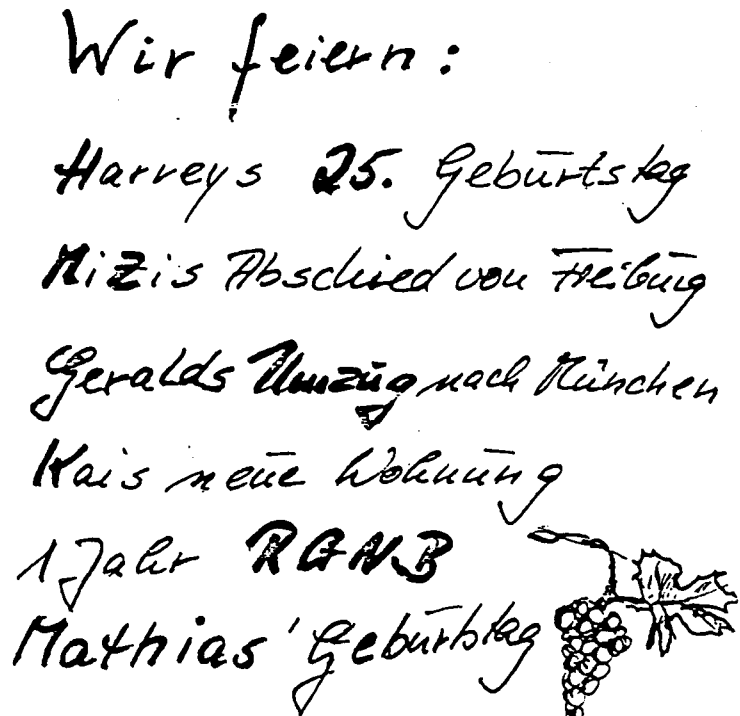 Wir feiern:
Harveys 25. Geburtstag
Mizis Abschied von Freiburg
Geralds Umzug nach München
Kais neue Wohnung
1 Jahr RGNB
Mathias' Geburtstag